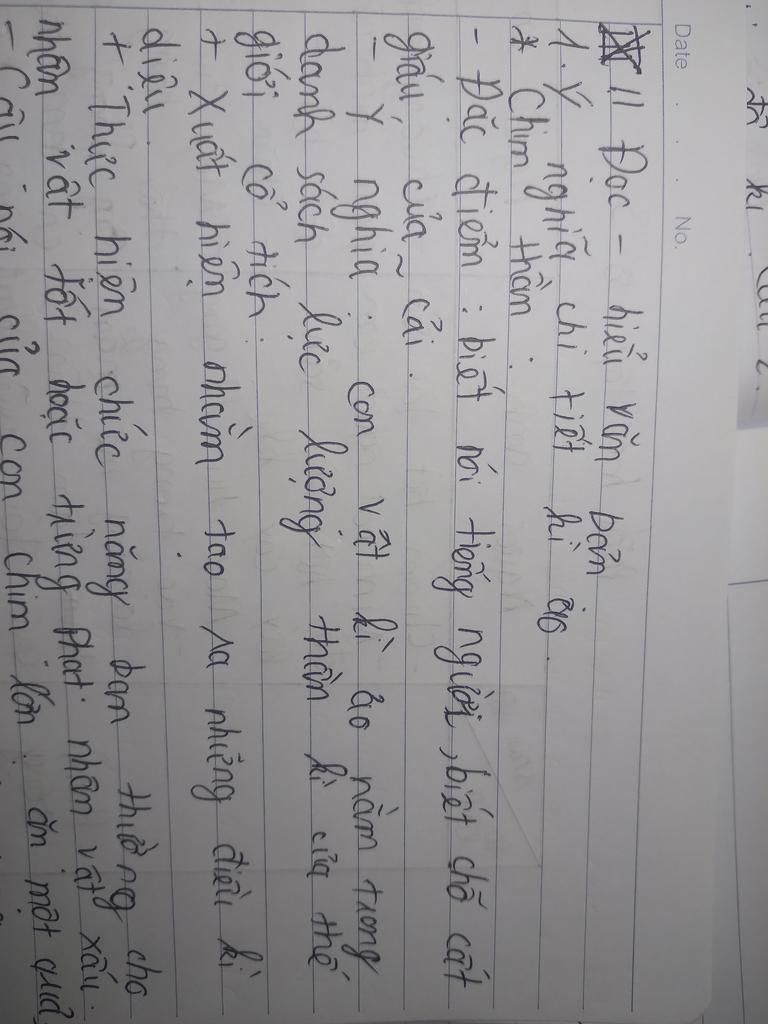 Date . . . No.
II Đọc - hiểu văn bản
1. Ý nghĩa chi tiết kì ảo.
* Chim thần.
- Đặc điểm: biết nói tiếng người, biết chỗ cất
giấu của cải.
- Ý nghĩa: con vật kì ảo nằm trong
danh sách lực lượng thần kì của thế
giới cổ tích.
+ Xuất hiện nhằm tạo ra những điều kì
diệu.
+ Thực hiện chức năng ban thưởng cho
nhân vật tốt hoặc trừng phạt nhân vật xấu.
- Câu nói của con chim lớn: ăn một quả,